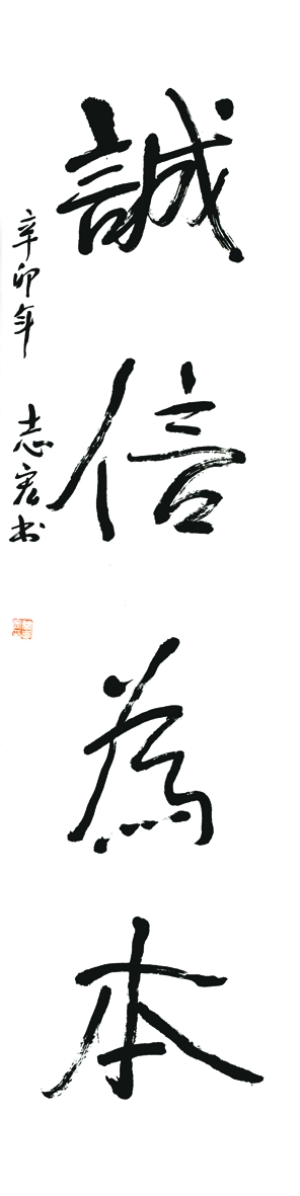 誠信為本
辛卯年 志宏书